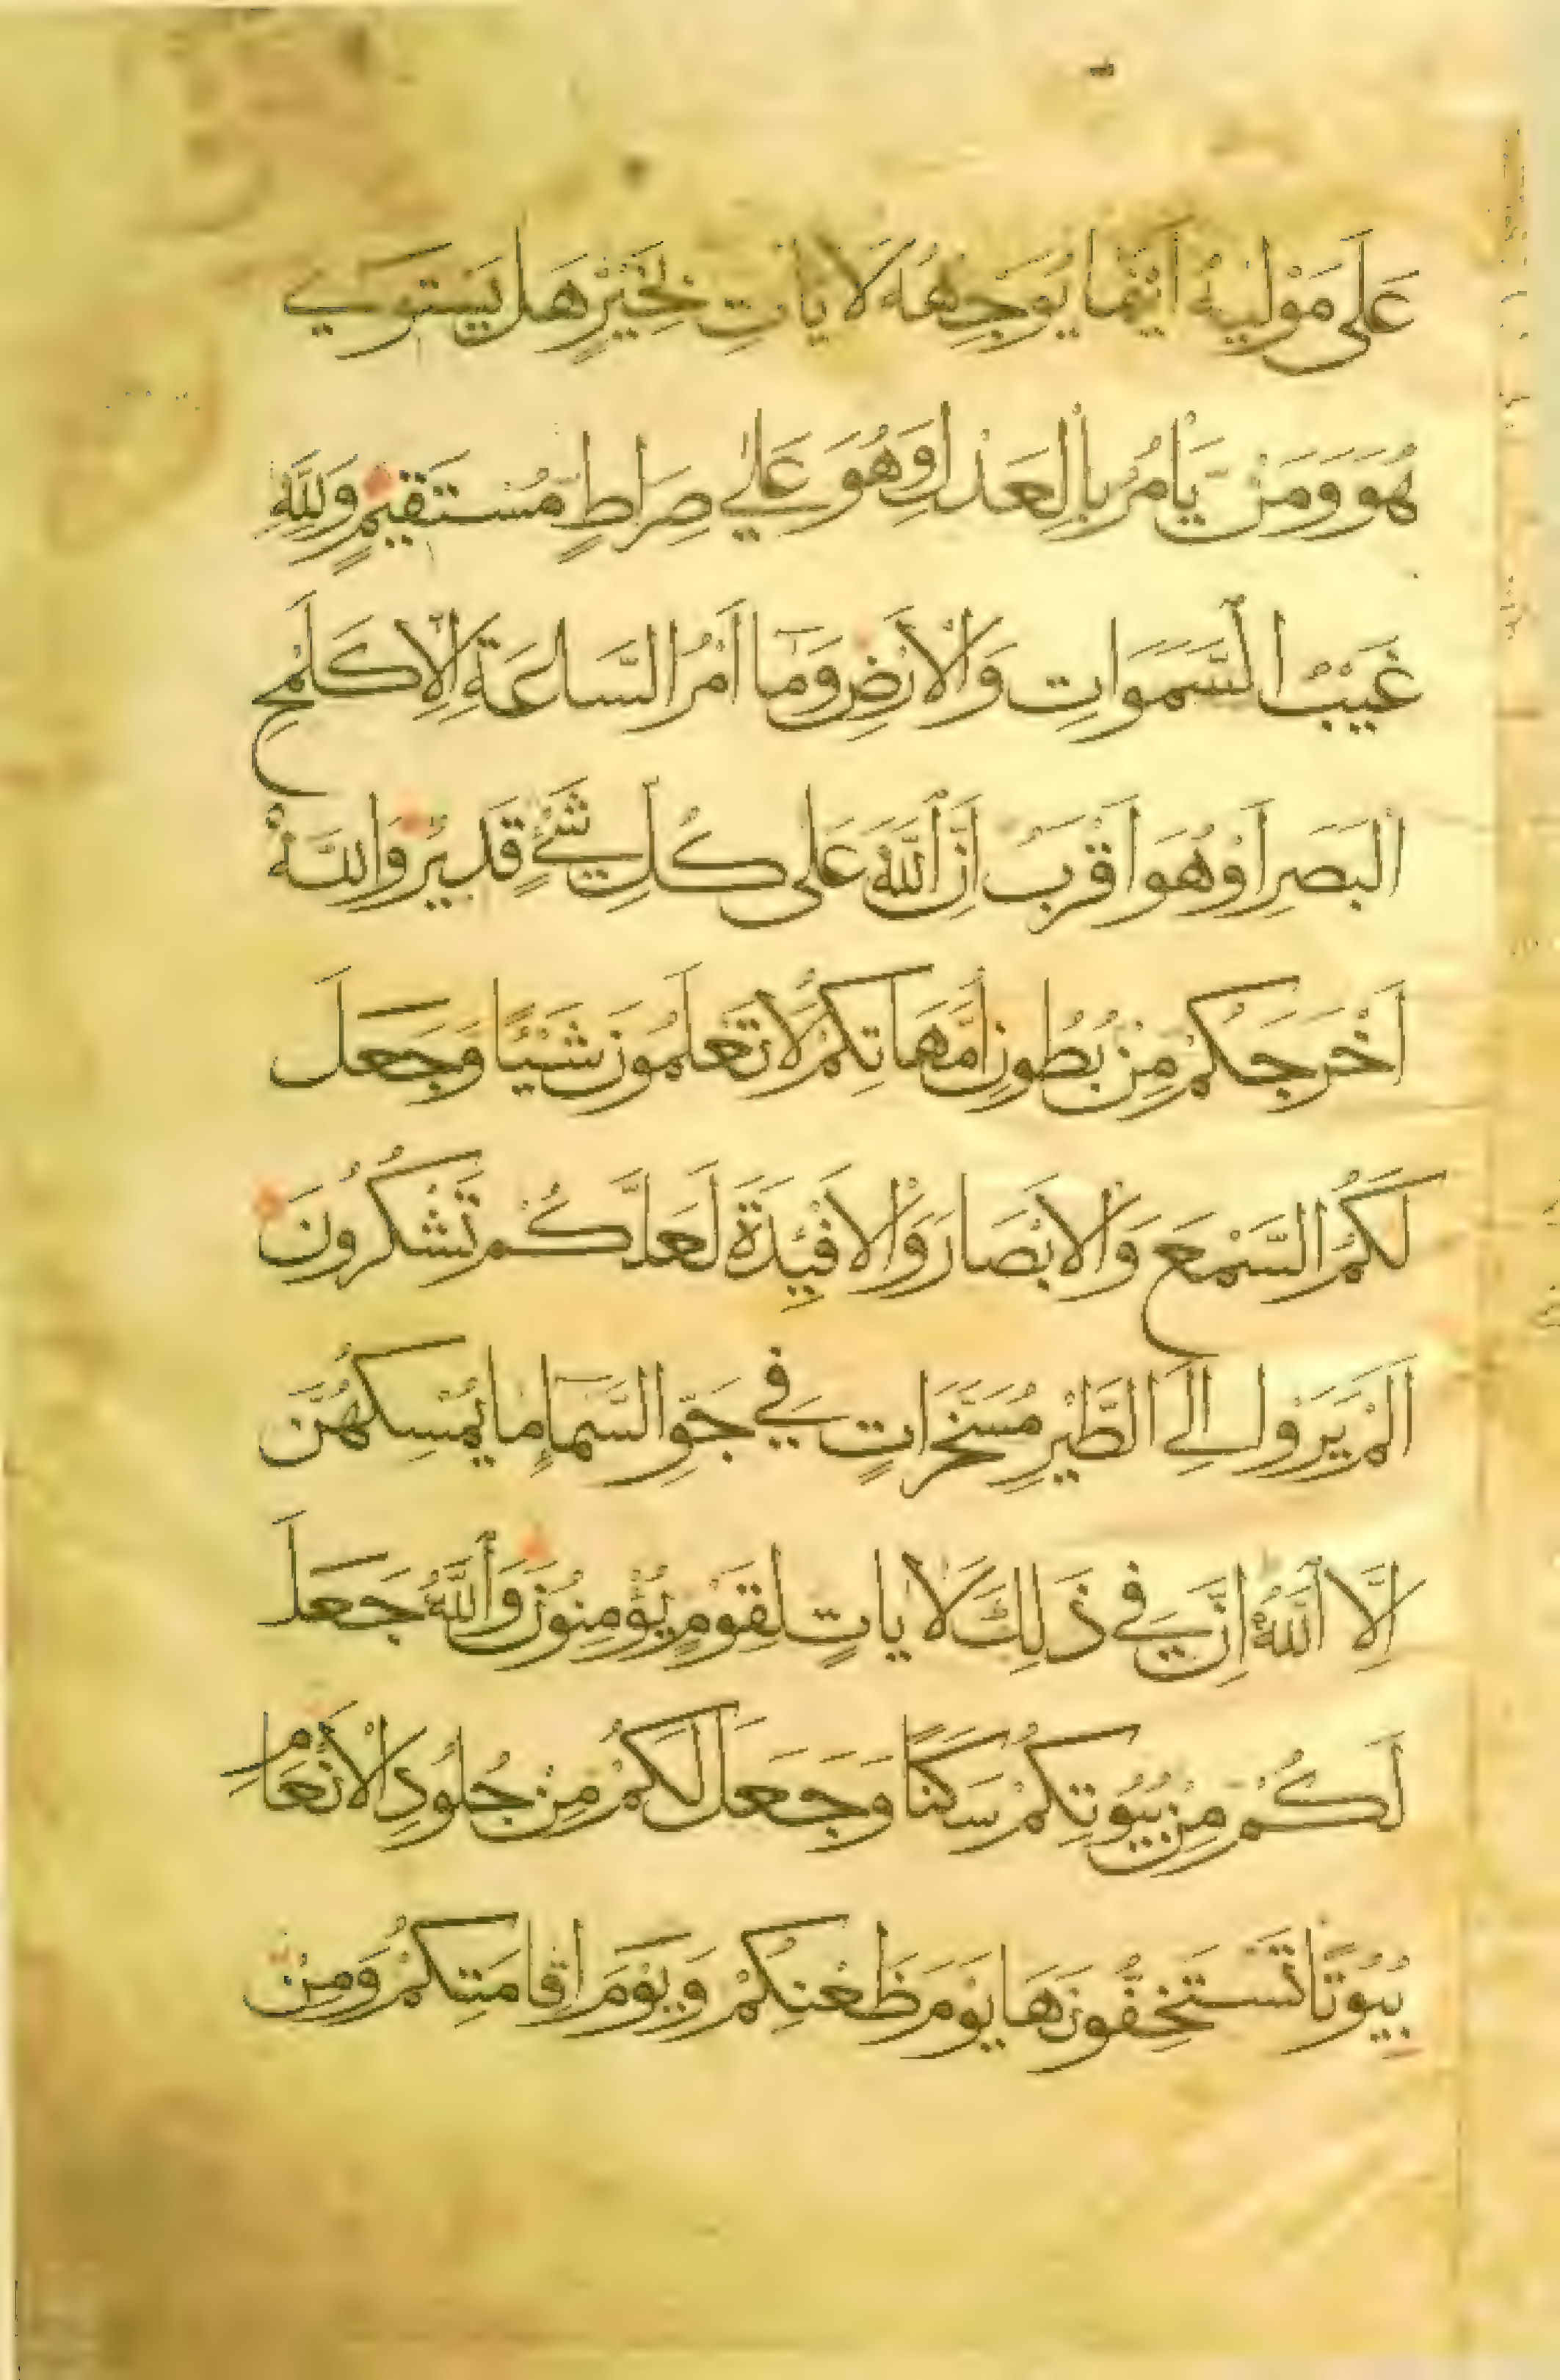 عَلَى مَوْلَيهُ أَيْنَمَا يُوَجِّهْهُ لَا يَاتِ بِخَيْرٍ هَلْ يَسْتَوِي
هُوَ وَمَنْ يَامُرُ بِالْعَدْلِ وَهُوَ عَلَى صِرَاطٍ مُسْتَقِيمٍ وَلِلَّهِ
غَيْبُ السَّمَوَاتِ وَالْأَرْضِ وَمَا أَمْرُ السَّاعَةِ إِلَّا كَلَمْحِ
الْبَصَرِ أَوْ هُوَ أَقْرَبُ إِنَّ اللَّهَ عَلَى كُلِّ شَيْءٍ قَدِيرٌ وَاللَّهُ
أَخْرَجَكُمْ مِنْ بُطُونِ أُمَّهَاتِكُمْ لَا تَعْلَمُونَ شَيْئًا وَجَعَلَ
لَكُمُ السَّمْعَ وَالْأَبْصَارَ وَالْأَفْئِدَةَ لَعَلَّكُمْ تَشْكُرُونَ
أَلَمْ يَرَوْا إِلَى الطَّيْرِ مُسَخَّرَاتٍ فِي جَوِّ السَّمَاءِ مَا يُمْسِكُهُنَّ
إِلَّا اللَّهُ إِنَّ فِي ذَلِكَ لَآيَاتٍ لِقَوْمٍ يُؤْمِنُونَ وَاللَّهُ جَعَلَ
لَكُمْ مِنْ بُيُوتِكُمْ سَكَنًا وَجَعَلَ لَكُمْ مِنْ جُلُودِ الْأَنْعَامِ
بُيُوتًا تَسْتَخِفُّونَهَا يَوْمَ ظَعْنِكُمْ وَيَوْمَ إِقَامَتِكُمْ وَمِنْ